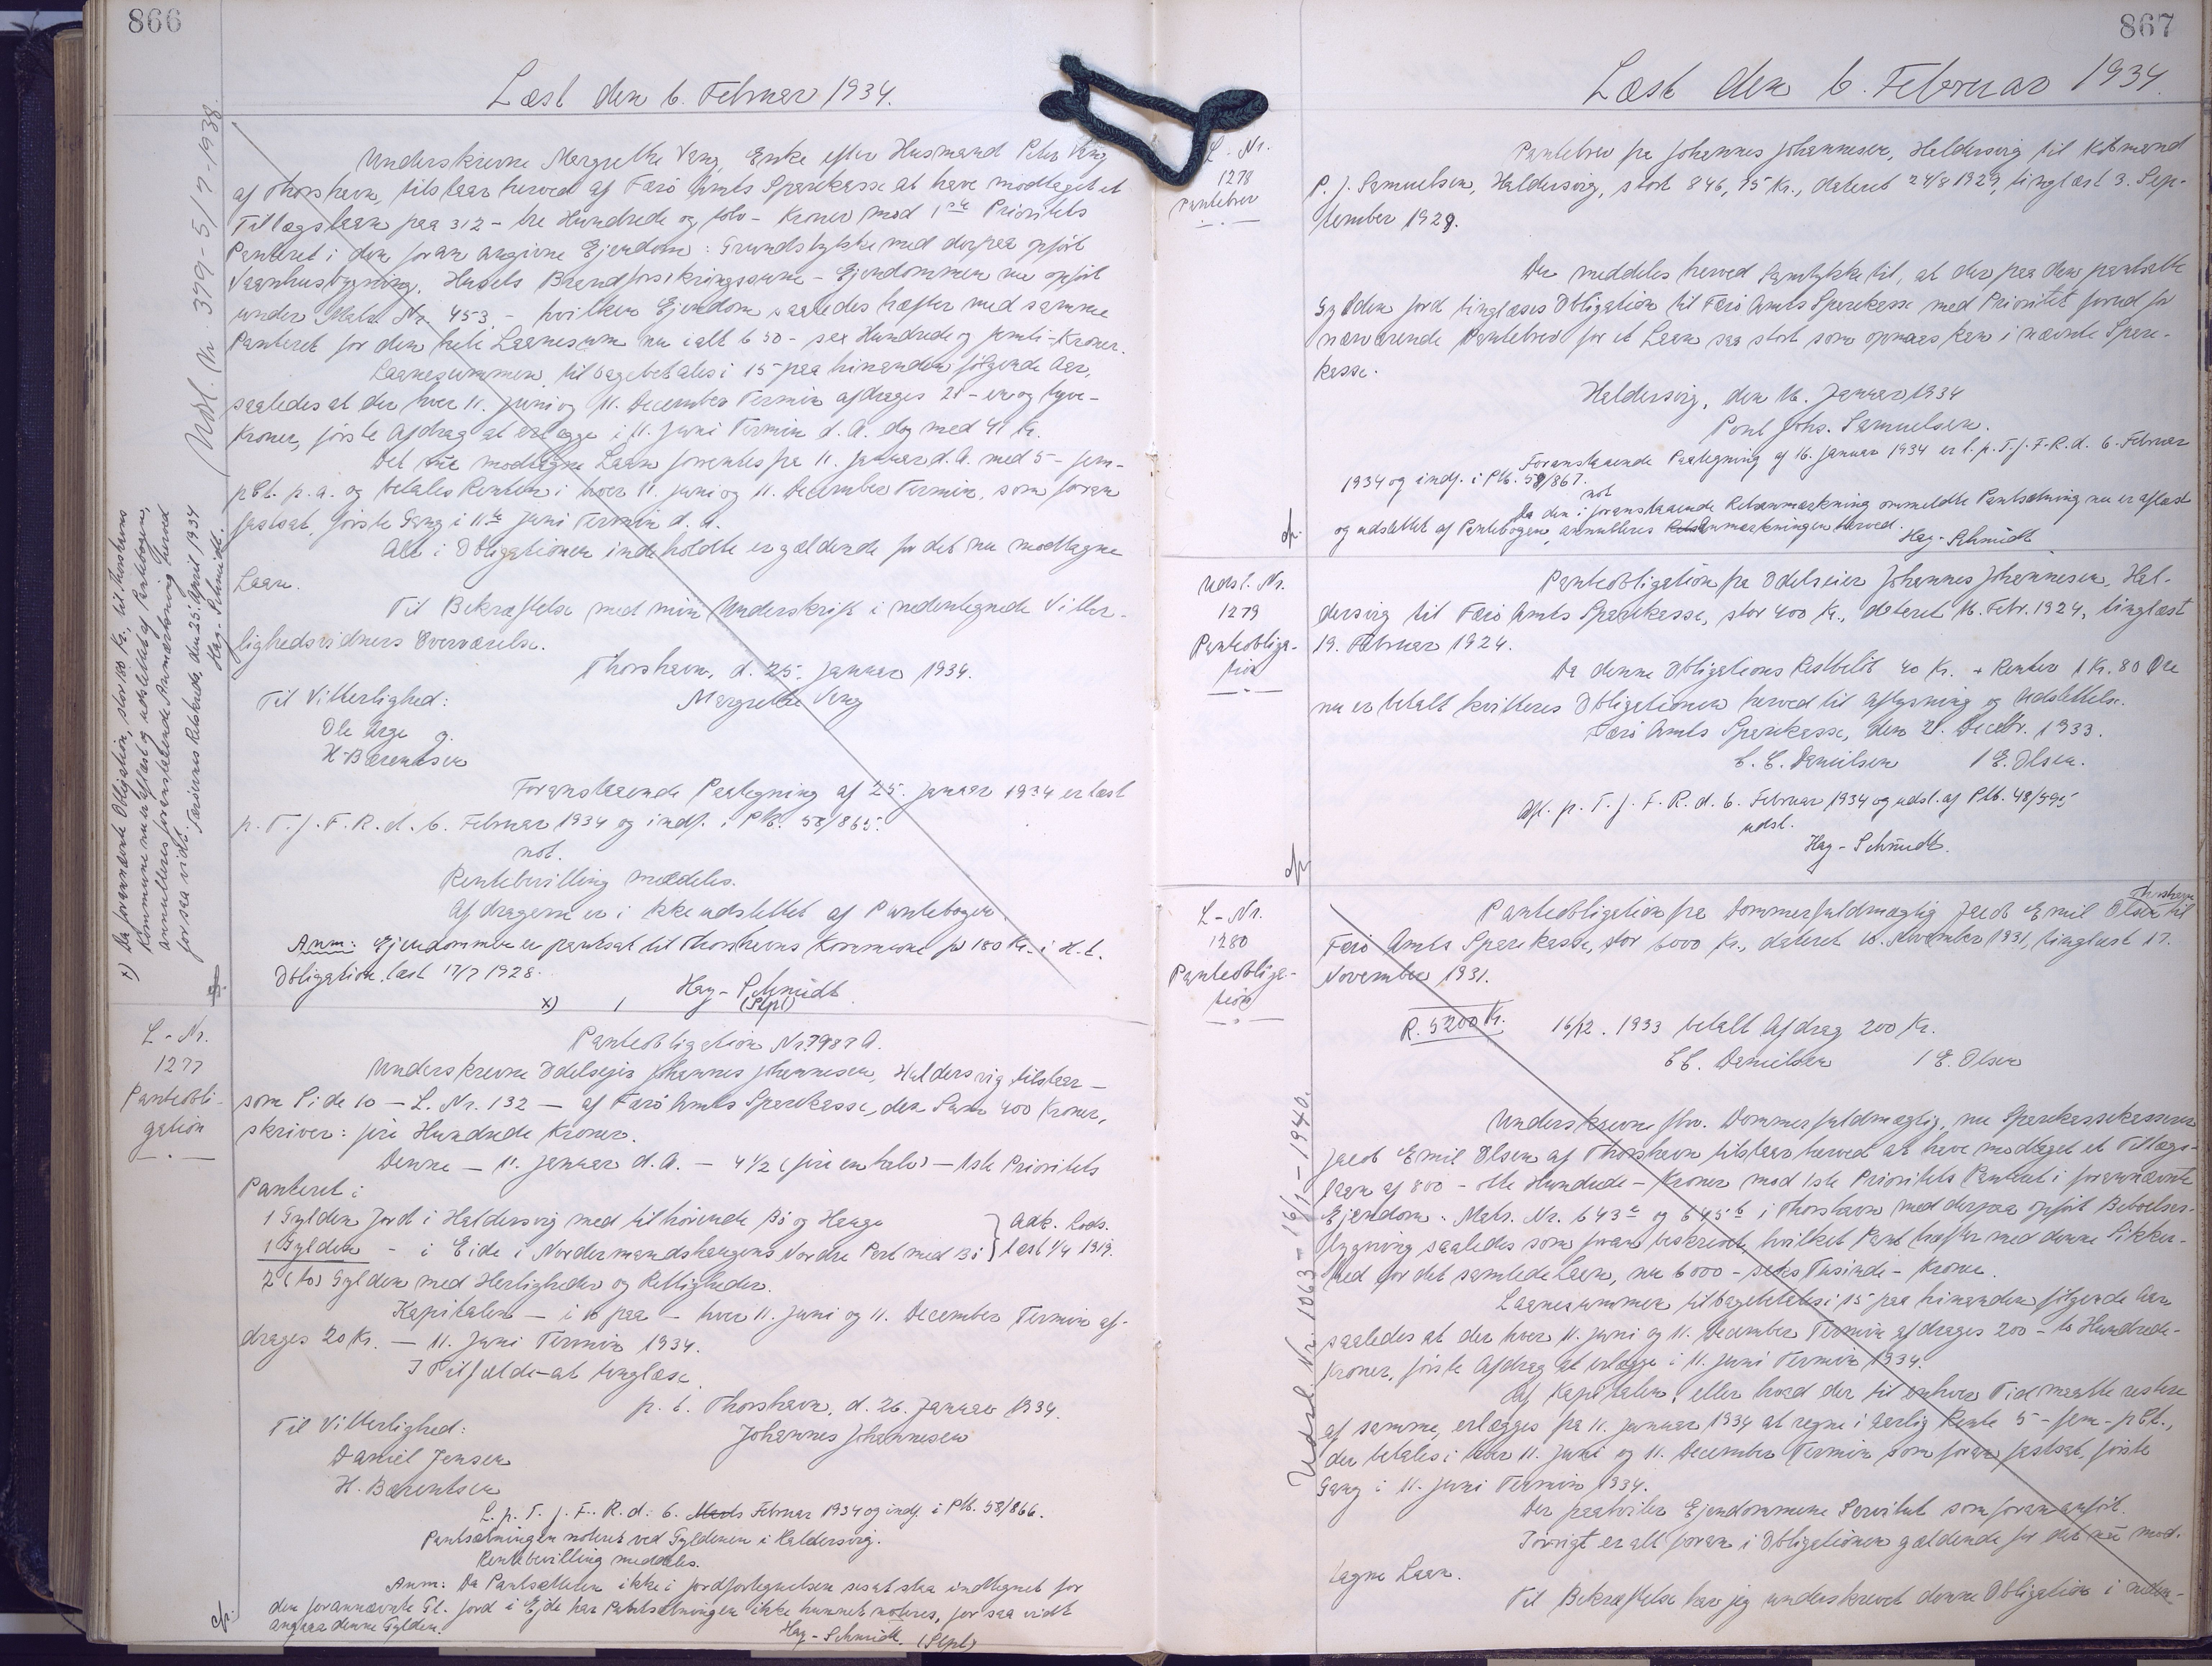 866
Læst den 6. Februar 1934.
Underskrevne Margrethe Vang, Enke efter Husmand Peter Vang
af Thorshavn, tilstaar herved af Færö Amts Sparekasse at have modtaget et
Tillægslaan paa 312 - tre Hundrede og tolv - Kroner mod 1ste Prioritets
Panteret i den foran angivne Ejendom: Grundstykke med derpaa opfört
Vaanhusbygning, Husets Brandforsikringssum - Ejendommen nu opfört
under Matr. Nr. 453 - hvilken Ejendom saaledes hæfter med samme
Panteret for den hele Laanesum nu ialt 650 - sex Hundrede og femti - Kroner.
Laanesummen tilbagebetales i 15 paa hinanden fölgende Aar,
saaledes at der hver 11. Juni og 11. December Termin afdrages 21 - en og tyve -
Kroner, förste Afdrag at erlægge i 11. Juni Termin d. A. dog med 41 Kr.
Det nu modtagne Laan forrentes fra 11. Januar d. A. med 5 - fem -
pCt. p. a. og betales Renten i hver 11. Juni og 11. December Termin, som foran
fastsat, förste Gang i 11te Juni Termin d. A.
Alt i Obligationen indeholdte er gældende for det nu modtagne
Laan.
Til Bekræftelse med min Underskrift i nedentegnede Vitter-
lighedsvidners Overværelse.
Thorshavn, d. 25. Januar 1934.
Til Vitterlighed: Margrethe Vang
Ole Arge
H. Bærentsen
Foranstaaende Paategning af 25. Januar 1934 er læst
p. T. f. F. R. d. 6. Februar 1934 og indf. i Ptb. 58/865.
not.
Rentebevilling meddeles.
Afdragene er ikke udslettet af Pantebogen.
Anm: Ejendommen er pantsat til Thorshavns Kommune for 180 Kr. i h. t.
Obligation, læst 17/7 1928.
Hag-Schmidt
x) (Stpl)
Udsl. Nr. 379 - 5/7-1938.
x) Da forannævnte Obligation, stor 180 Kr., til Thorshavns
Kommune nu er aflæst og udslettet af Pantebogen,
annulleres foranstaaende Anmærkning herved
for saa vidt.
Færöernes Retskreds, den 25. April 1934
Hag-Schmidt.
L-Nr.
1277
Panteobli-
gation
Panteobligation Nr. 7987 A.
Underskrevne Odelsejer Johannes Johannesen, Haldersvig tilstaar -
som Side 10 - L. Nr. 132 - af Færö Amts Sparekasse, den Sum 400 Kroner,
skriver: fire Hundrede Kroner.
Denne - 11. Januar d. A. - 4 1/2 (fire en halv) - 1ste Prioritets
Panteret i
1 Gylden Jord i Haldersvig med tilhörende Bö og Hauge } Adk. Lods.
1 Gylden - i Eide i Nordermandshaugens Nordre Part med Bö } læst 1/4 1919.
2 (to) Gylden med Herligheder og Rettigheder.
Kapitalen - i 10 paa - hver 11. Juni og 11. December Termin af-
drages 20 Kr. - 11. Juni Termin 1934.
I Tilfælde - at tinglæse.
p. t. Thorshavn, d. 26. Januar 1934.
Til Vitterlighed: Johannes Johannesen
Daniel Jensen
H. Bærentsen
L. p. T. f. F. R. d: 6. Marts Februar 1934 og indf. i Ptb. 58/866.
Pantsætningen noteret ved Gyldenen i Haldersvig.
Rentebevilling meddeles.
Anm: Da Pantsætteren ikke i Jordfortegnelsen ses at staa indtegnet for
den forannævnte Gl. Jord i Ejde har Pantsætningen ikke kunnet noteres, for saa vidt
angaar denne Gylden.
Hag-Schmidt. (Stpl)
867
Læst den 6. Februar 1934.
L. Nr.
1278
Pantebrev
Pantebrev fra Johannes Johannesen, Haldersvig til Købmand
P. J. Samuelsen, Haldersvig, stort 846,95 Kr., dateret 24/8 1929, tinglæst 3. Sep-
tember 1929.
Der meddeles herved Samtykke til, at der paa den pantsatte
Gylden Jord tinglæses Obligation til Færö Amts Sparekasse med Prioritet forud for
nærværende Pantebrev for et Laan saa stort som opnaas kan i nævnte Spare-
kasse.
Haldersvig, den 16. Januar 1934
Poul Johs. Samuelsen.
Foranstaaende Paategning af 16. Januar 1934 er l. p. T. f. F. R. d. 6. Februar
1934 og indf. i Ptb. 58/867.
not
Da den i foranstaaende Retsanmærkning ommeldte Pantsætning nu er aflæst
og udslettet af Pantebogen, annulleres Anmærkningen herved.
Hag-Schmidt
Udsl. Nr.
1279
Panteobliga-
tion
Panteobligation fra Odelseier Johannes Johannesen, Hal-
dersvig til Færö Amts Sparekasse, stor 400 Kr., dateret 16. Febr. 1924, tinglæst
19. Februar 1924.
Da denne Obligations Restbelöb 40 Kr. + Renter 1 Kr. 80 Øre
nu er betalt kvitteres Obligationen herved til Aflysning og Udslettelse.
Færö Amts Sparekasse, den 21. Decbr. 1933.
C. C. Danielsen / E. Olsen.
Afl. p. T. f. F. R. d. 6. Februar 1934 og udsl. af Ptb. 48/595
udsl.
Hag-Schmidt.
L-Nr.
1280
Panteobliga-
tion
Panteobligation fra Dommerfuldmægtig Jacob Emil Olsen Thorshavn til
Færö Amts Sparekasse, stor 6000 Kr., dateret 10. November 1931, tinglæst 17.
November 1931.
R. 5200 Kr. 16/12. 1933 betalt Afdrag 200 Kr.
C C. Danielsen / E. Olsen
Underskrevne fhv. Dommerfuldmægtig, nu Sparekassekasserer
Jacob Emil Olsen af Thorshavn tilstaar herved at have modtaget et Tillægs-
laan af 800 - otte Hundrede - Kroner mod 1ste Prioritets Panteret i forannævnte
Ejendom: Matr. Nr. 643a og 645b i Thorshavn med derpaa opfört Beboelses-
bygning saaledes som foran beskrevet, hvilket Pant hæfter med denne Sikker-
hed for det samlede Laan, nu 6000 - seks Tusinde - Kroner.
Laanesummen tilbagebetales i 15 paa hinanden fölgende Aar
saaledes at der hver 11. Juni og 11. December Termin afdrages 200 - to Hundrede -
Kroner, förste Afdrag at erlægge i 11. Juni Termin 1934.
Af Kapitalen, eller hvad der til enhver Tid maatte restere
af samme, erlægges fra 11. Januar 1934 at regne i aarlig Rente 5 - fem - pCt.,
der betales i hver 11. Juni og 11. December Termin som foran fastsat, förste
Gang i 11. Juni Termin 1934.
Der paahviler Ejendommene Servitut som foran anfört.
Iövrigt er alt foran i Obligationen gældende for det nu mod-
tagne Laan.
Til Bekræftelse har jeg underskrevet denne Obligation i neden-
Udsl. Nr. 1063 - 16/1 - 1940.